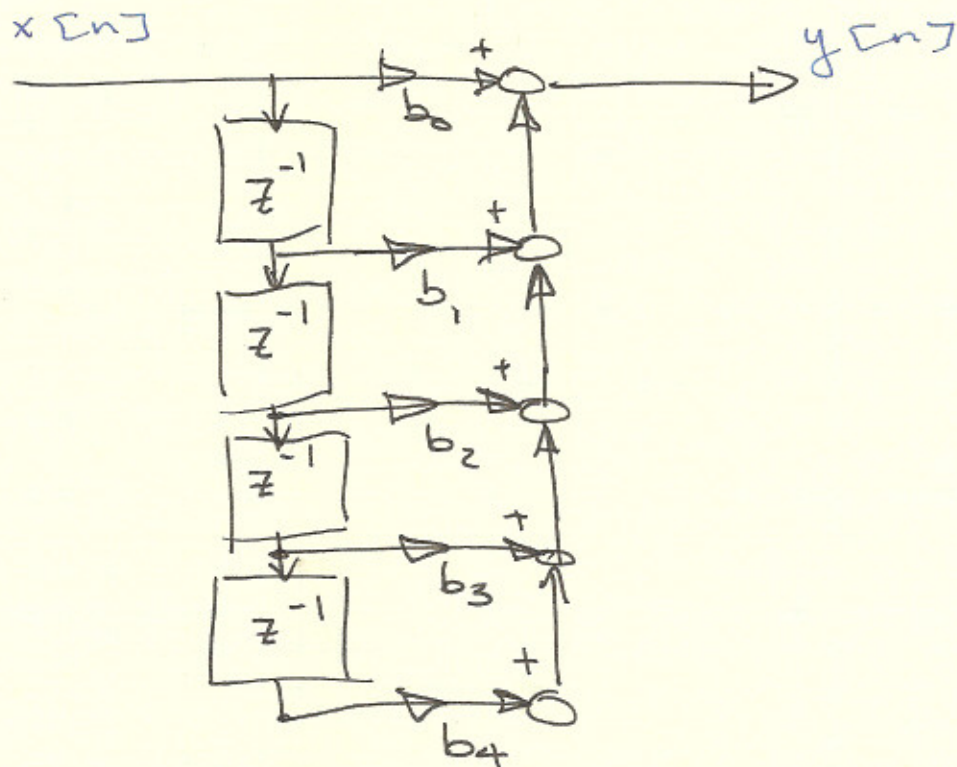 x [n]
y [n]
+
b₀
z⁻¹
+
b₁
z⁻¹
+
b₂
z⁻¹
+
b₃
z⁻¹
+
b₄